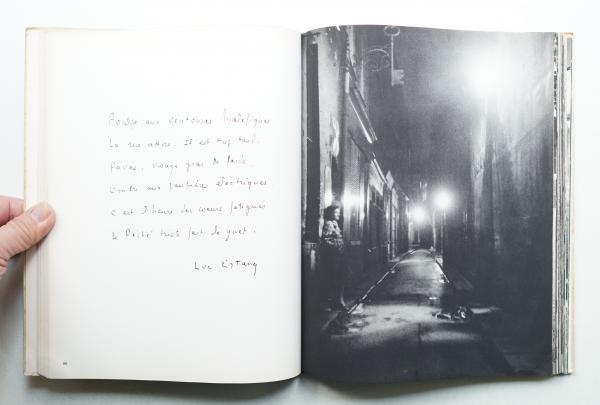 aux ventouses Maléfiques
La rue attire. Il est trop tard.
Pavés, visage gras de fards.
aux paupières électriques
C'est l'heure des cœurs fatigués
Le Péché fait le guet.
Luc Estang